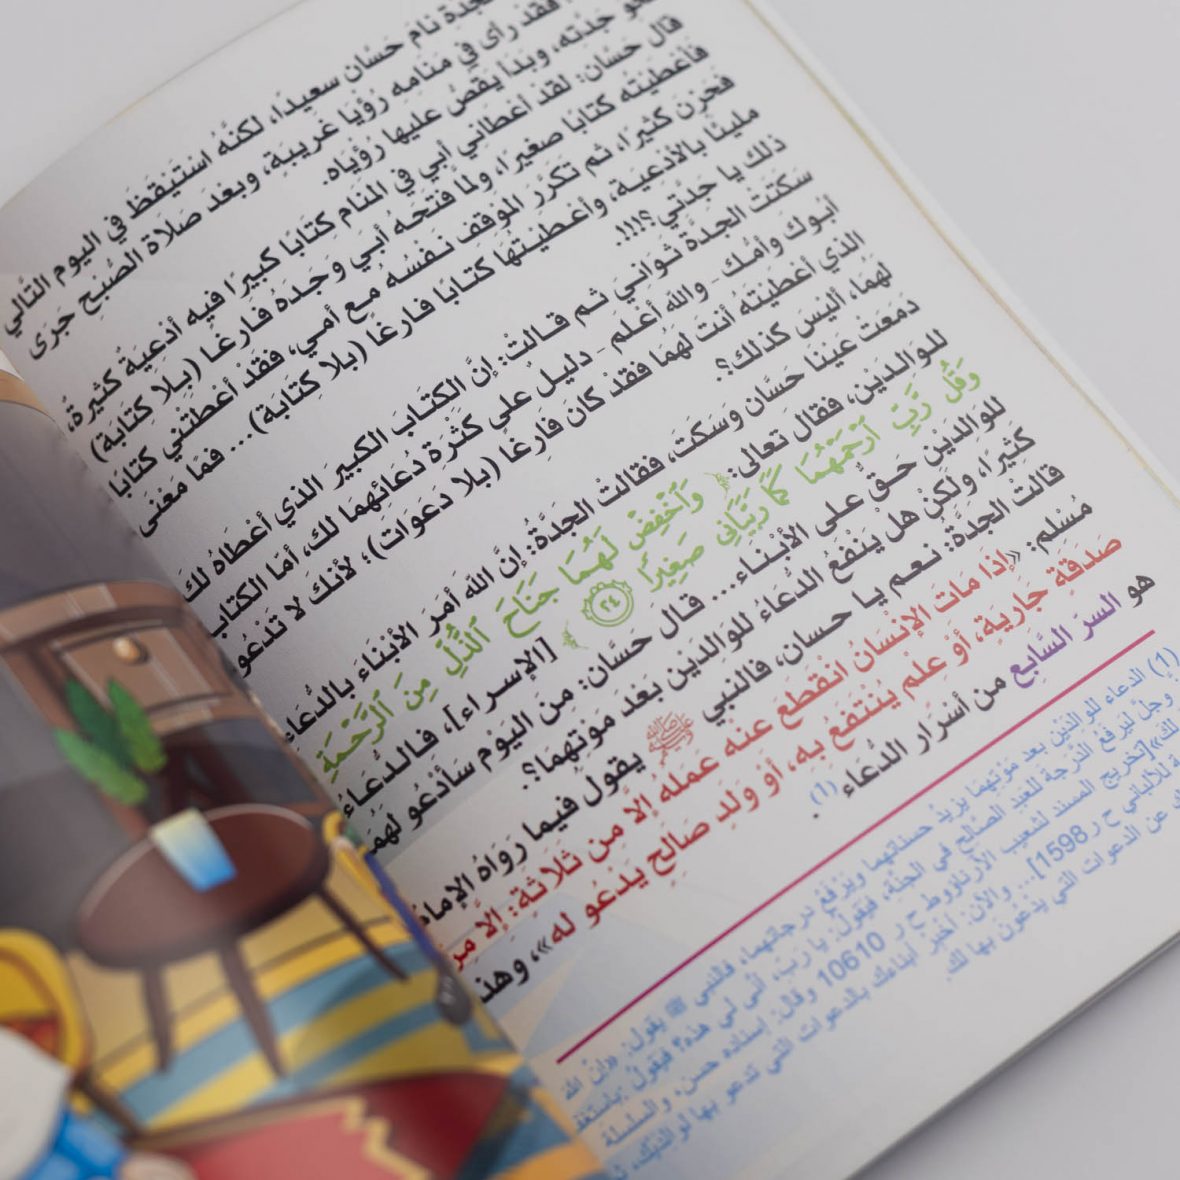 نَامَ حَسَّان سعيدًا، لكنَّهُ اسْتَيْقَظَ في اليوم التَّالي
فقد رأى في مَنامه رُؤْيَا غَريبَة، وبعدَ صلَاة الصُبح جرَى
جدّتِه، وبدَأ يَقصُّ عليها رُؤْيَاه.
قال حسَّان: لقدْ أعْطَاني أبي في المنَام كِتابًا كبيرًا فيه أدعيَةٌ كثيرةٌ،
فأعْطَيْتُه كتابًا صغيرًا، ولمّا فَتحَهُ أبي وَجدَهُ فارغًا (بلا كِتابَة)
فحَزِن كثيرًا، ثم تكرّر الموقف نَفسُه مع أمي، فقدْ أعْطَتْني كتابًا
مليئًا بالأدْعية، وأعْطيْتُها كتابًا فارغًا (بلا كتابَة)... فمَا مَعْنَى
ذلك يا جدَّتي؟!!!.
سَكتَتْ الجدَّة ثَواني ثم قالتْ: إنَّ الكتَاب الكبيرَ الذي أعْطاهُ لكَ
أبُوكَ وأمُّك - والله أعْلم - دليلٌ على كَثْرَةِ دُعائهمَا لك، أمَا الكتَاب
الذي أعْطيْتَه أنتَ لهُمَا فقدْ كان فَارِغًا (بلا دعَوَات)؛ لأنكَ لا تَدْعُو
لهُمَا، أليْسَ كذلك؟
دمَعَتْ عَيْنا حَسَّان وسَكتَ، فقالتْ الجَدَّةُ: إنَّ الله أمَرَ الأبْناءَ بالدُّعَاء
للوَالدَيْن، ففقال تعالى: ﴿وَٱخْفِضْ لَهُمَا جَنَاحَ ٱلذُّلِّ مِنَ ٱلرَّحْمَةِ
وَقُل رَّبِّ ٱرْحَمْهُمَا كَمَا رَبَّيَانِي صَغِيرًا ٢٤﴾ [الإسراء]، فالدعَاءُ
للوَالِدَين حَقٌّ على الأبْنَاء... قال حَسَّان: مِن اليَوْم سَأدْعُو لهُمَا
كثيرًا، ولكِنْ هل يَنْفَعُ الدُّعَاءُ للوَالِدَيْن بَعْدَ مَوْتهمَا؟
قالتْ الجدَّة: نعم يا حسان، فالنبي ﷺ يقولُ فيما رَوَاهُ الإمامُ
مُسْلِم: «إذا ماتَ الإنْسَانُ انْقَطَع عنه عمَلهُ إلَّا من ثَلاثَةٍ: إلَّا مِنْ
صَدقَةٍ جاريَةٍ، أوْ عِلْم يُنْتَفَعُ به، أوْ وَلدٍ صَالحٍ يدْعُو له»، وهذا
هو السرّ السَّابع من أسْرَار الدُّعَاء (1).
(1) الدعاء للوالدَيْن بعد مَوْتهما يزيدُ حسناتهما ويَرْفعُ درجاتهما، فالنبي ﷺ يقول: «إنَّ الله
وجلَّ ليَرْفعُ الدَّرَجة للعَبْد الصَّالح في الجنَّة، فيقولُ: يا ربِّ، أنَّى لي هذه؟ فيقولُ:
لك» [تخريج المسند لشعيب الأرناؤوط ح ر 10610 وقال: إسناده حسن، والسلسلة
للألباني ح ر 1598]... والآن: أخبر أبناءك بالدعوات التي تدعو بها لوالديك،
عن الدعوات التي يدعُون بها لك.